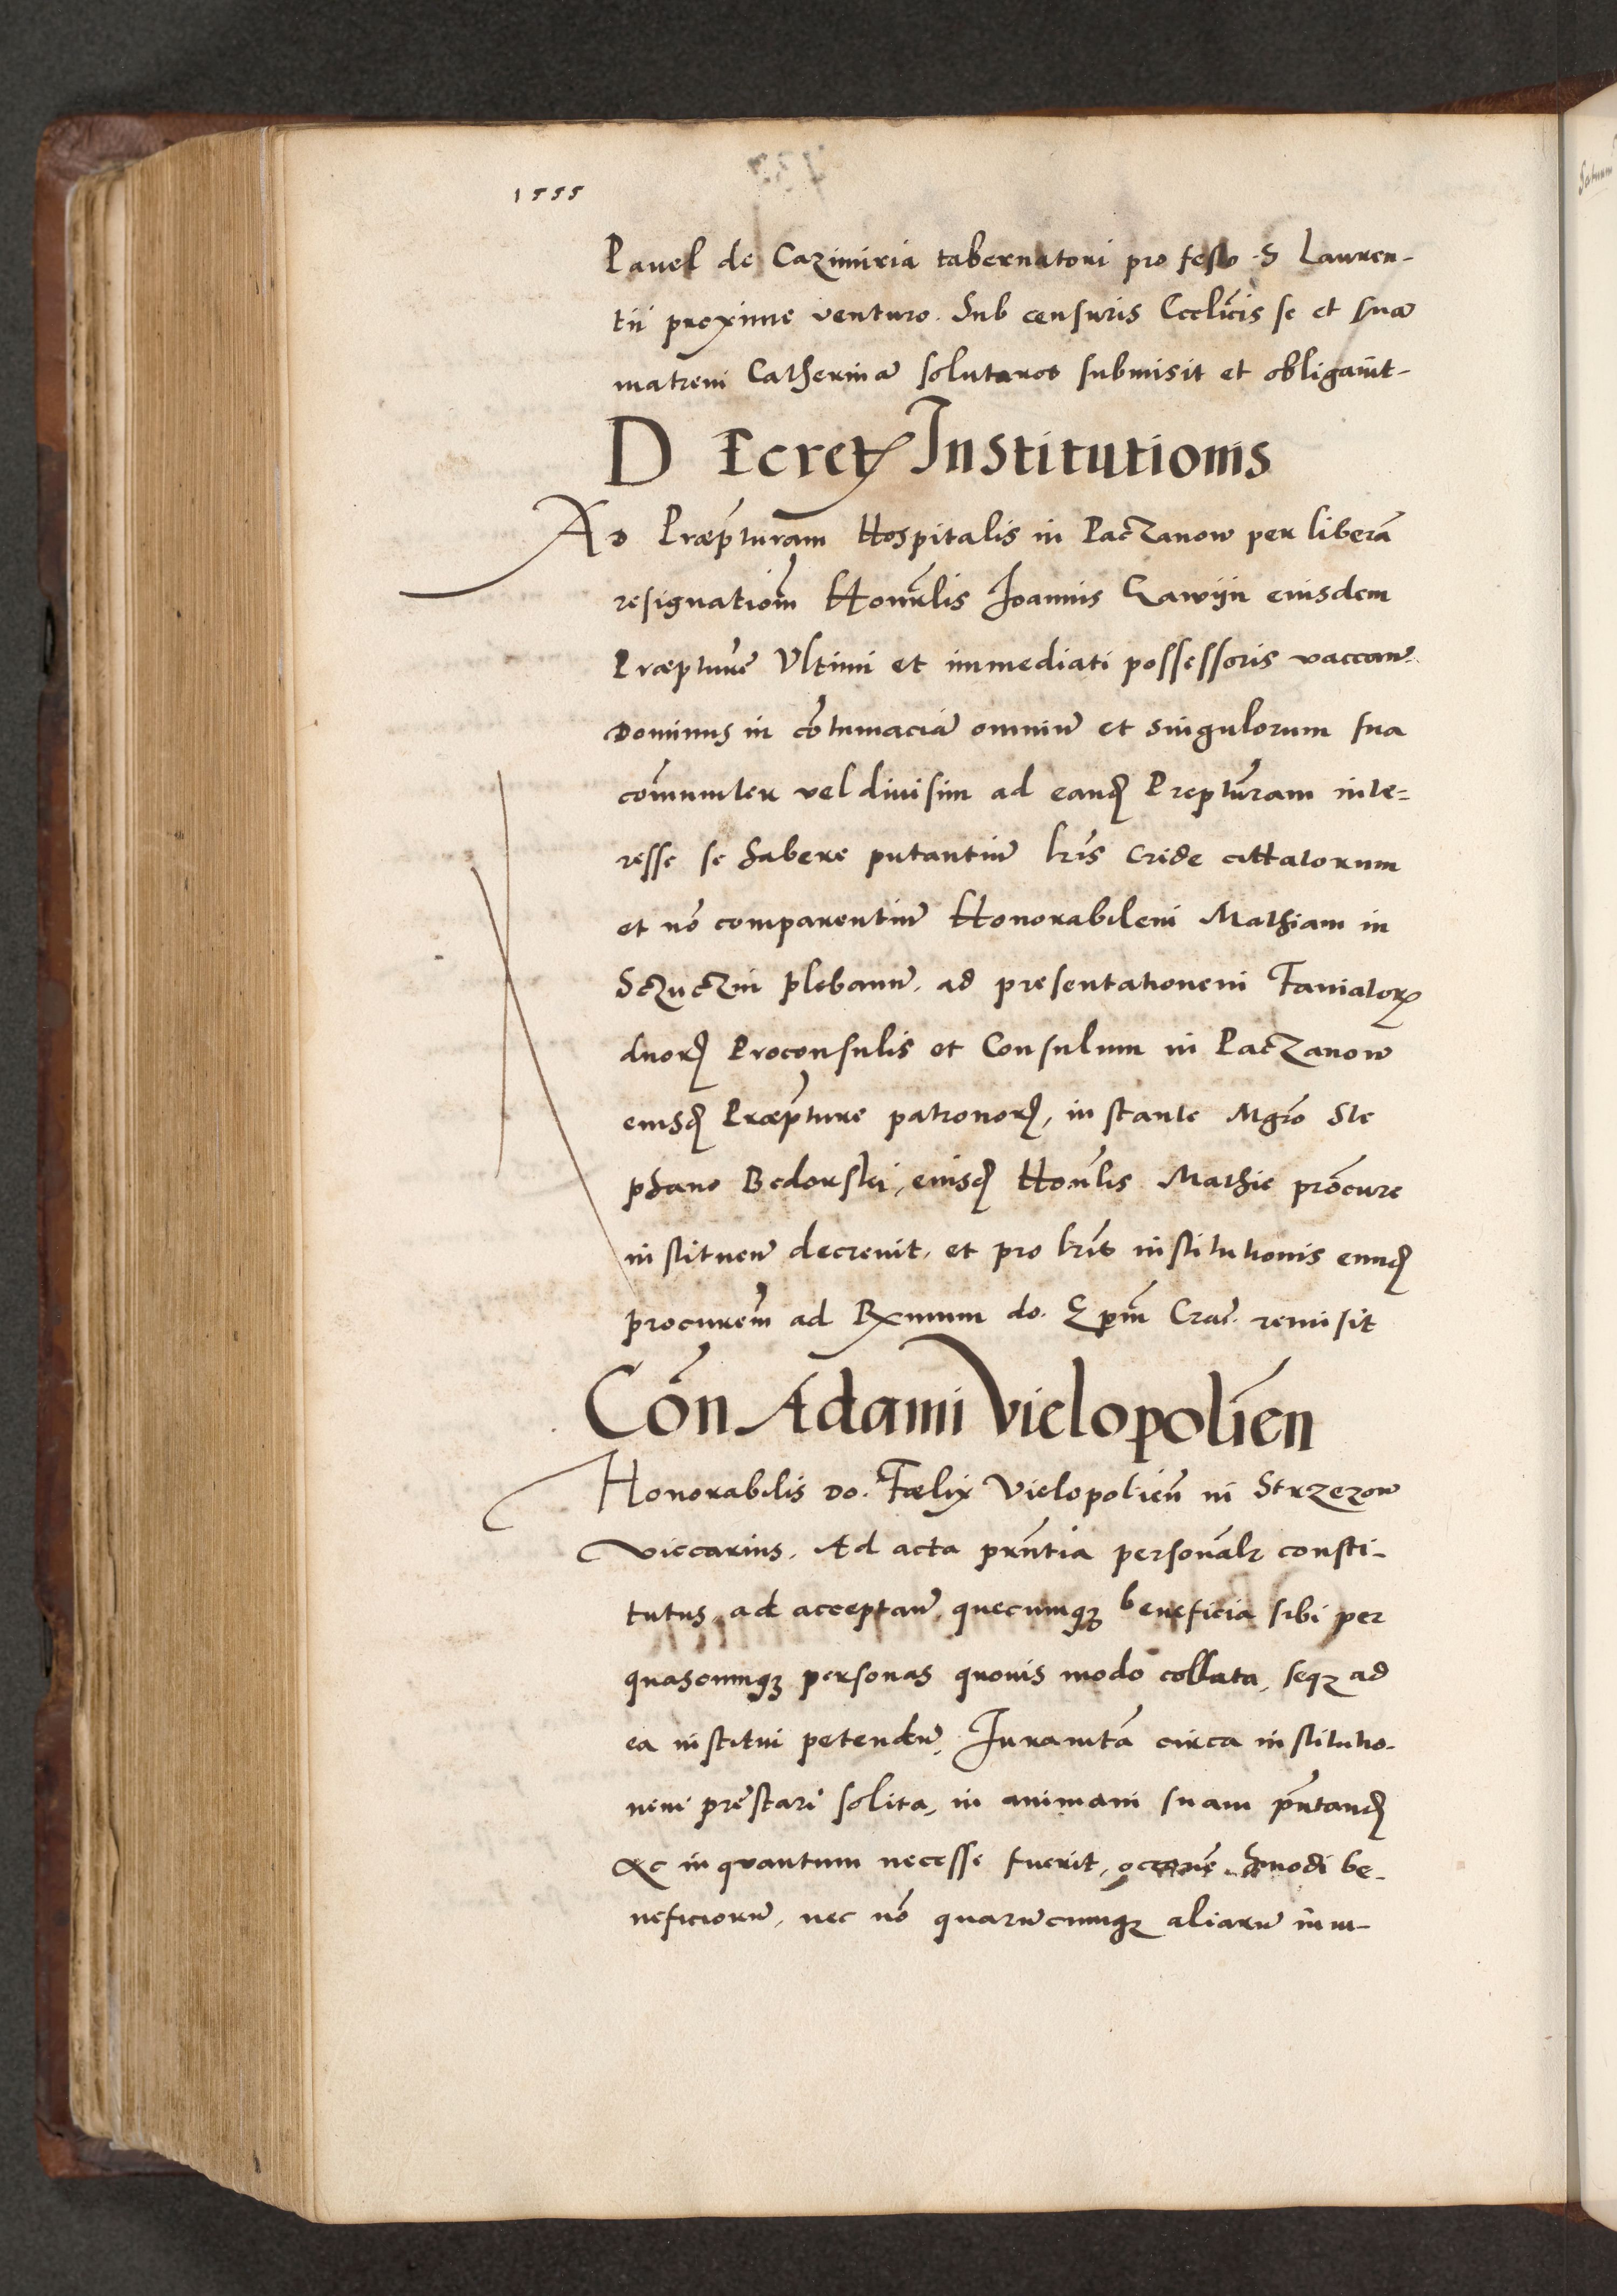 1555
Pavel de Cazimiria tabernatori pro festo S Lauren-
tii proxime venturo. Sub censuris Ecclīcis se et suā
matrem Catherinā soluturos submisit et obligavit-
DEcretū Institutionis
Ad Præp̄turam Hospitalis in Paczanow per liberā
resignationē Honorlis Joannis Gawijn eiusdem
Præpture Ultimi et immediati possessoris vaccan̄
Dominus in cōtumaciā omniū et singulorum sua
com̄uniter vel divisim ad eand Prepturam inte=
resse se habere putantiū lr̄is cride cittatorum
et nō comparentiū Honorabilem Mathiam in
Sczuczin plebanū, ad presentationem Famatorꝝ
dnorꝝ Proconsulis et Consulum in Paczanow
eiusd Præp̄ture patronorꝝ, instante Mgro Ste
phano Bedorski, eiusd Honlis Mathie procure
instituen̄ decrevit, et pro lr̄is institutionis eund
procurem̄ ad Rx̄mum do. Ep̄m Cra. remisit
Cōn Adami Vielopolien̄
Honorabilis Do. Fœlix Vielopolien̄ in Strzezow
Viccarius. Ad acta prn̄tia personalr consti-
tutus, ad acceptan̄ quecumqꝫ beneficia sibi per
quascumqꝫ personas quovis modo collata, seqꝫ ad
ea institui petendū, Juramtā circa institutio-
nem prestari solita, in animam suam prn̄tand
Ac inquantum necesse fuerit, hmodi be-
neficiorū, nec nō quarūcumqꝫ aliarū